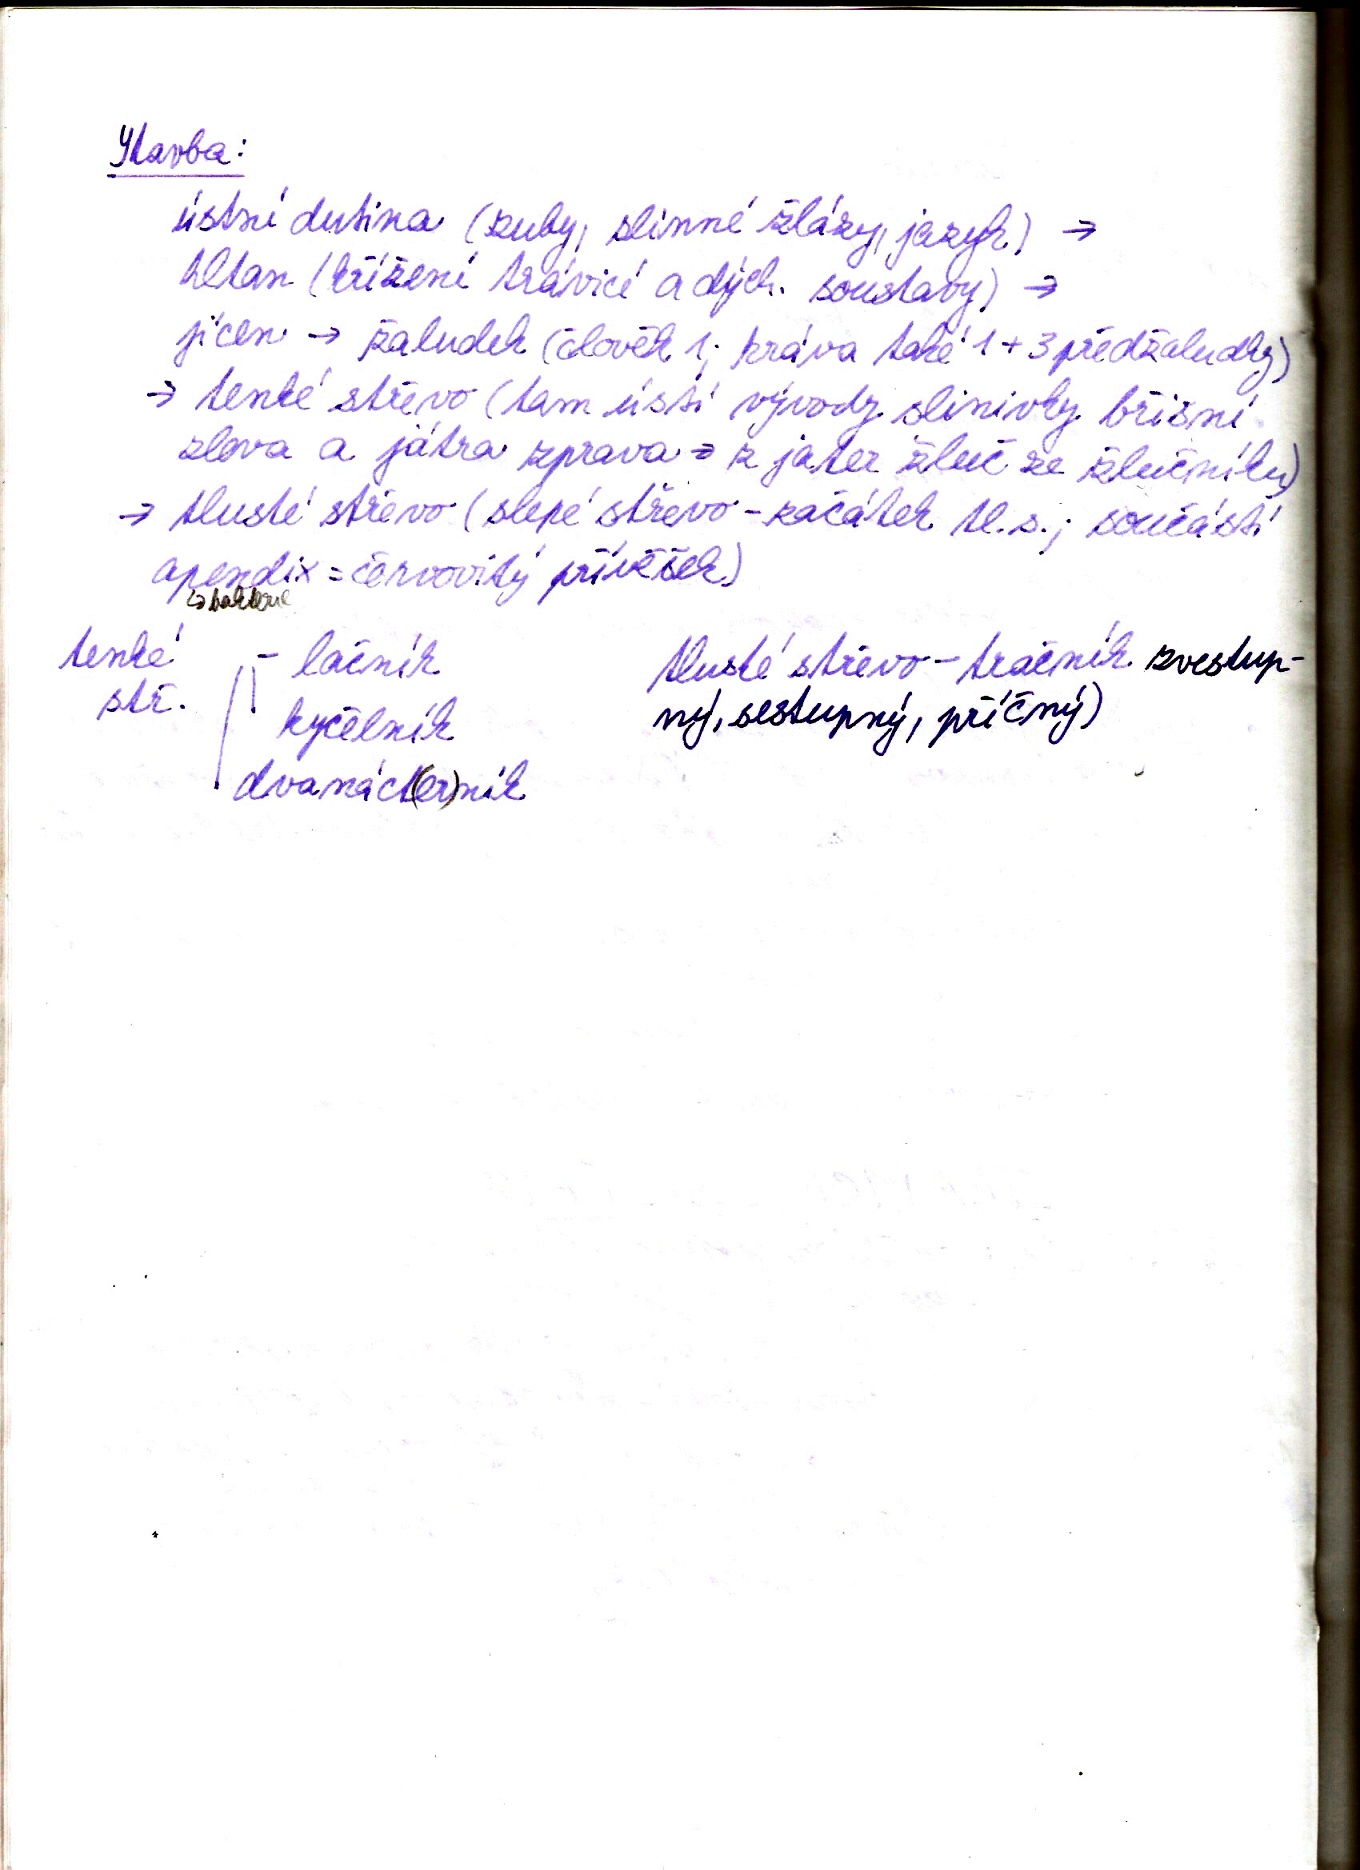 Stavba:
ústní dutina (zuby, slinné žlázy, jazyk) →
hltan (křížení trávicí a dých. soustavy) →
jícen → žaludek (člověk 1; kráva také 1 + 3 předžaludky)
→ tenké střevo (tam ústí vývody slinivky břišní
zleva a játra zprava → z jater žluč ze žlučníku)
→ tlusté střevo (slepé střevo - začátek tl. s.; součástí
apendix = červovitý přívěšek)
↳ bakterie
tenké - lačník
stř. kyčelník
dvanáct(er)ník
tlusté střevo - tračník vzestup-
ný, sestupný, příčný)